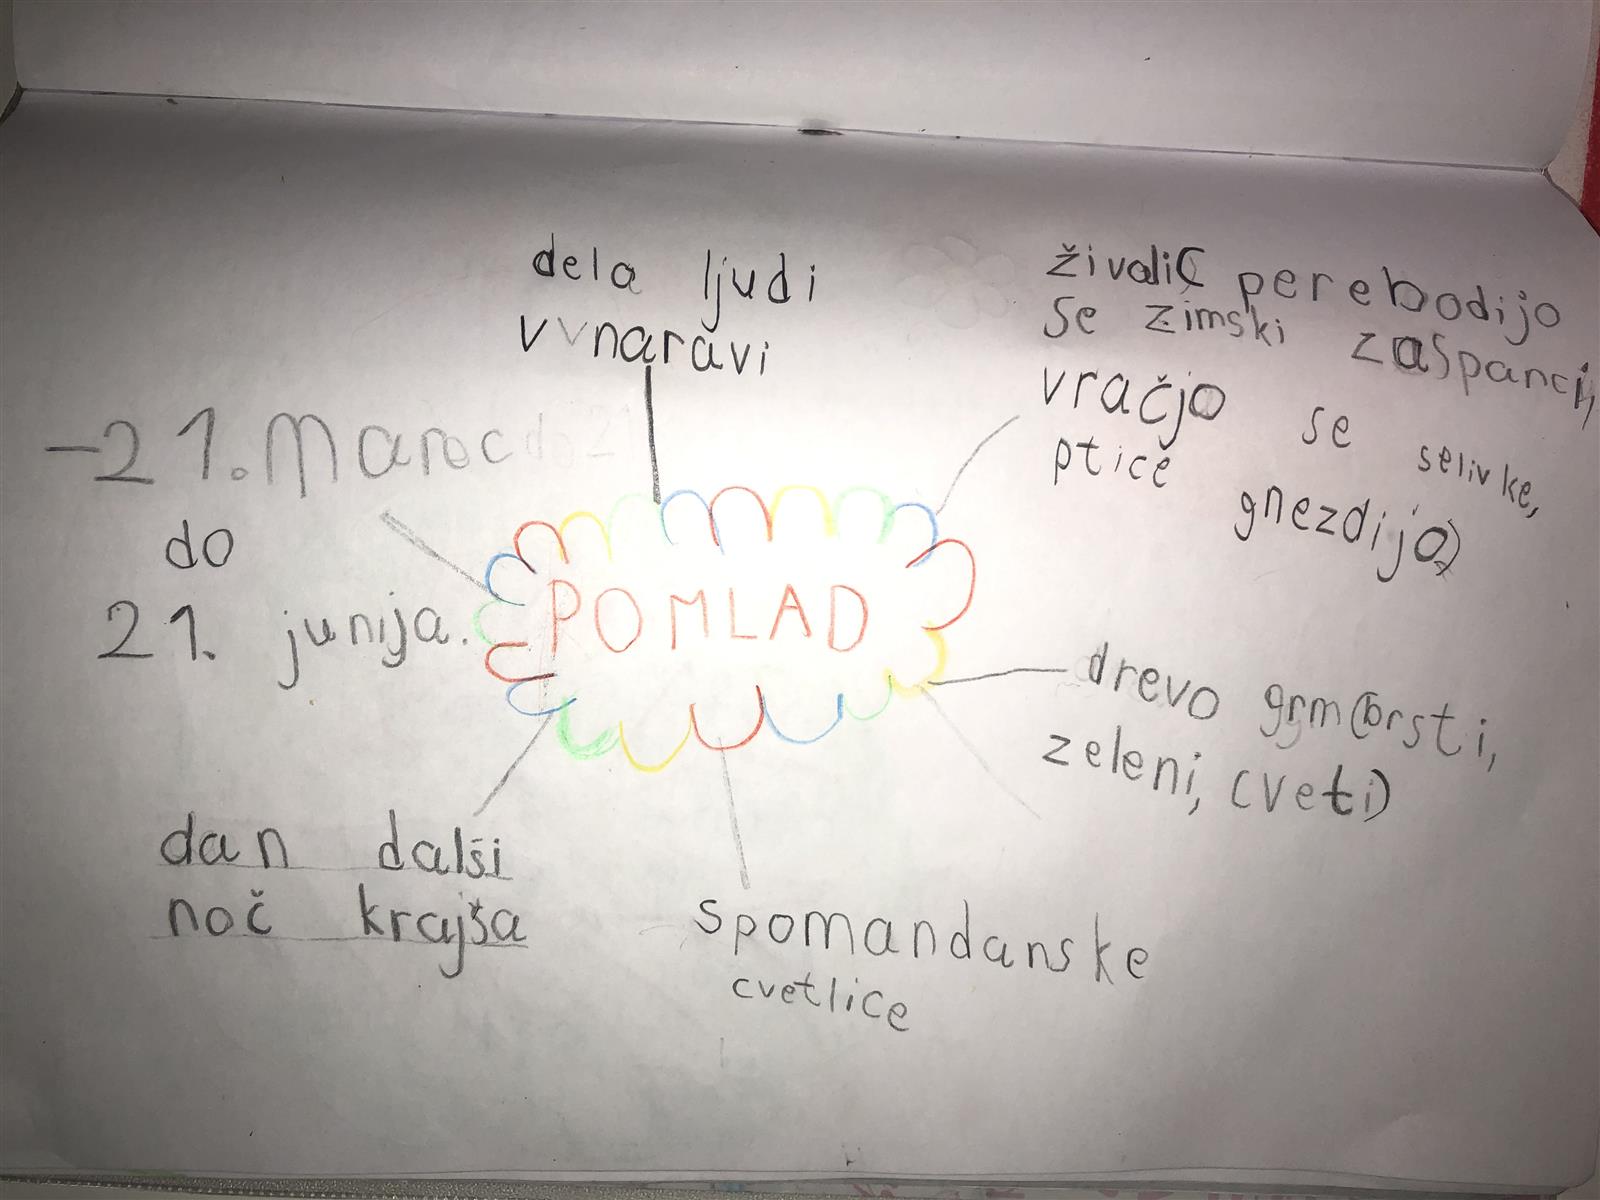 dela ljudi
v v naravi
živali( perebodijo
se zimski zaspanci,
vračjo se selivke,
ptice gnezdijo)
-21. Marec
do
21. junija.
POMLAD
drevo grm(brsti,
zeleni, cveti)
dan dalši
noč krajša
spomandanske
cvetlice